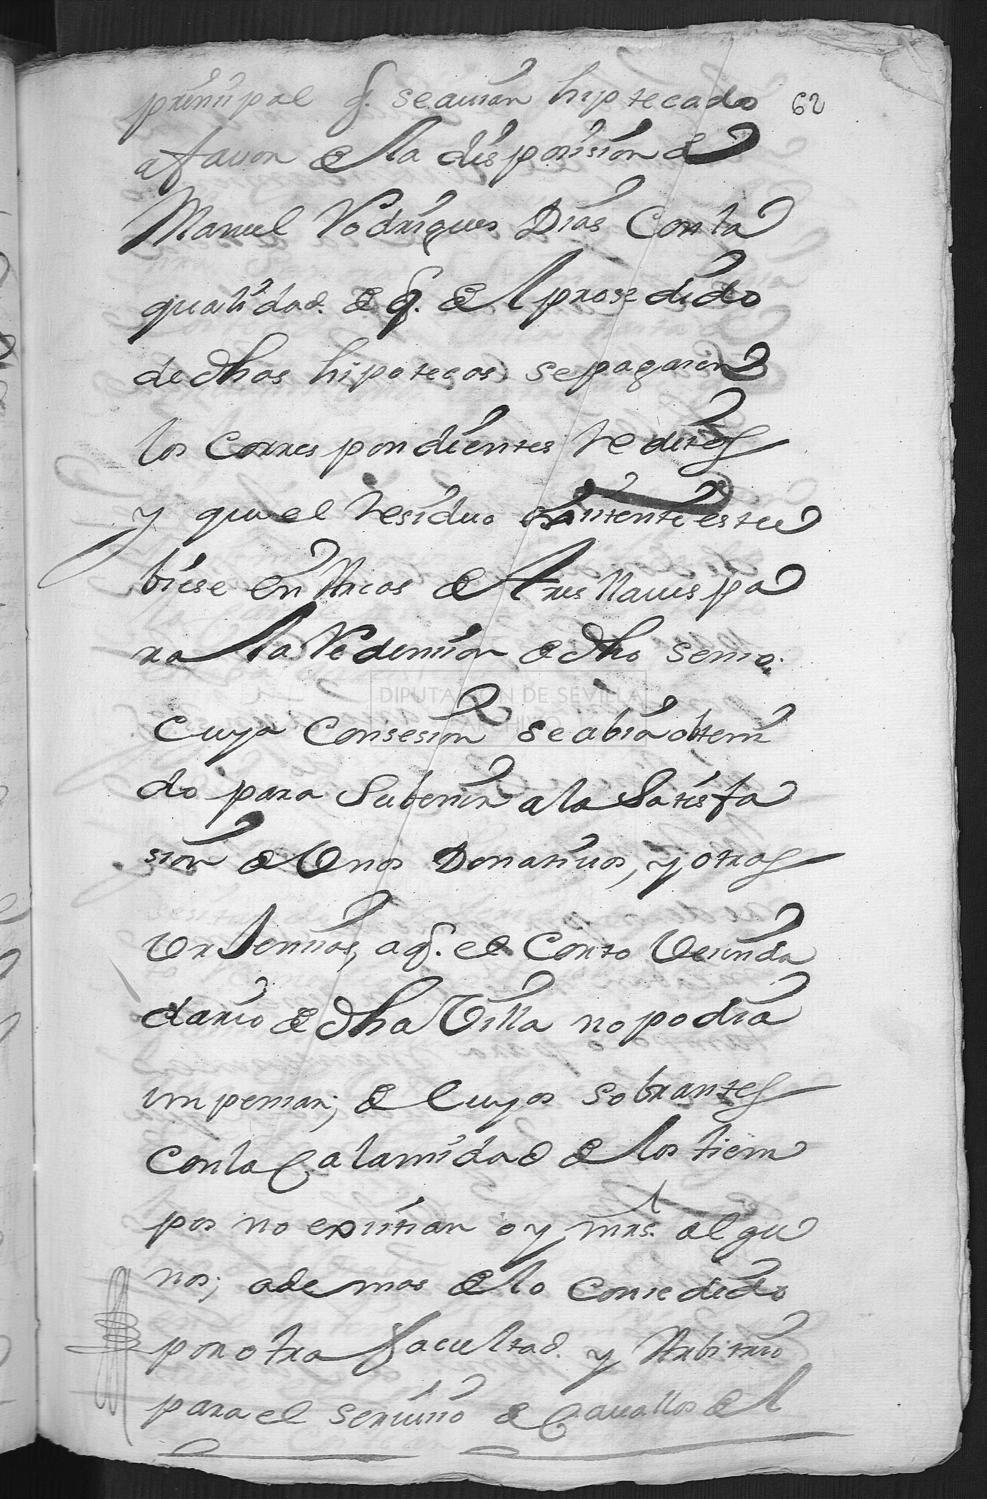 prinsipal q. seauian hiptecado 62
afauor de la disposision de
Manuel Rodrigues Dias Con la
qualidad. de q. del prosedido
de dhas hipotecas, se pagarian
los Correspondientes reditos
y que el residuo existente estu
biese en Arcas de tres llaues pa
ra la Redension de dho senso.
DIPUTACIÓN DE SEVILLA
Cuya Consesion se abia obteni
do para Subenir a la Satisfa
sion de Unos Donatiuos, y otras
Urjensias, a q. el Corto Vesinda
dario de dha Villa no podia
impensar; de Cuyos sobrantes
Con la Calamidad de los tiem
pos no existian oy mrs. algu
nos; ademas de lo Consedido
por otra Facultad. y Arbitrio
para el seruisio de Cauallos del